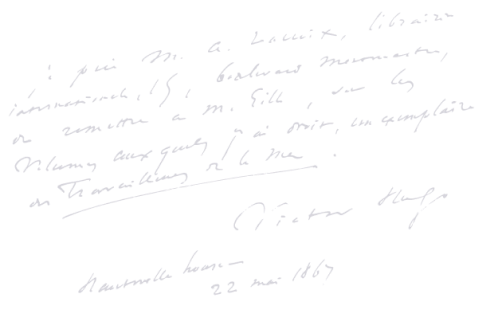 Je prie M. A. Lacroix, libraire
internationale, 15, boulevard Montmartre,
de remettre à M. Gill, sur les
volumes auxquels j'ai droit, un exemplaire
des Travailleurs de la Mer.
Victor Hugo
Hauteville house
22 mai 1867